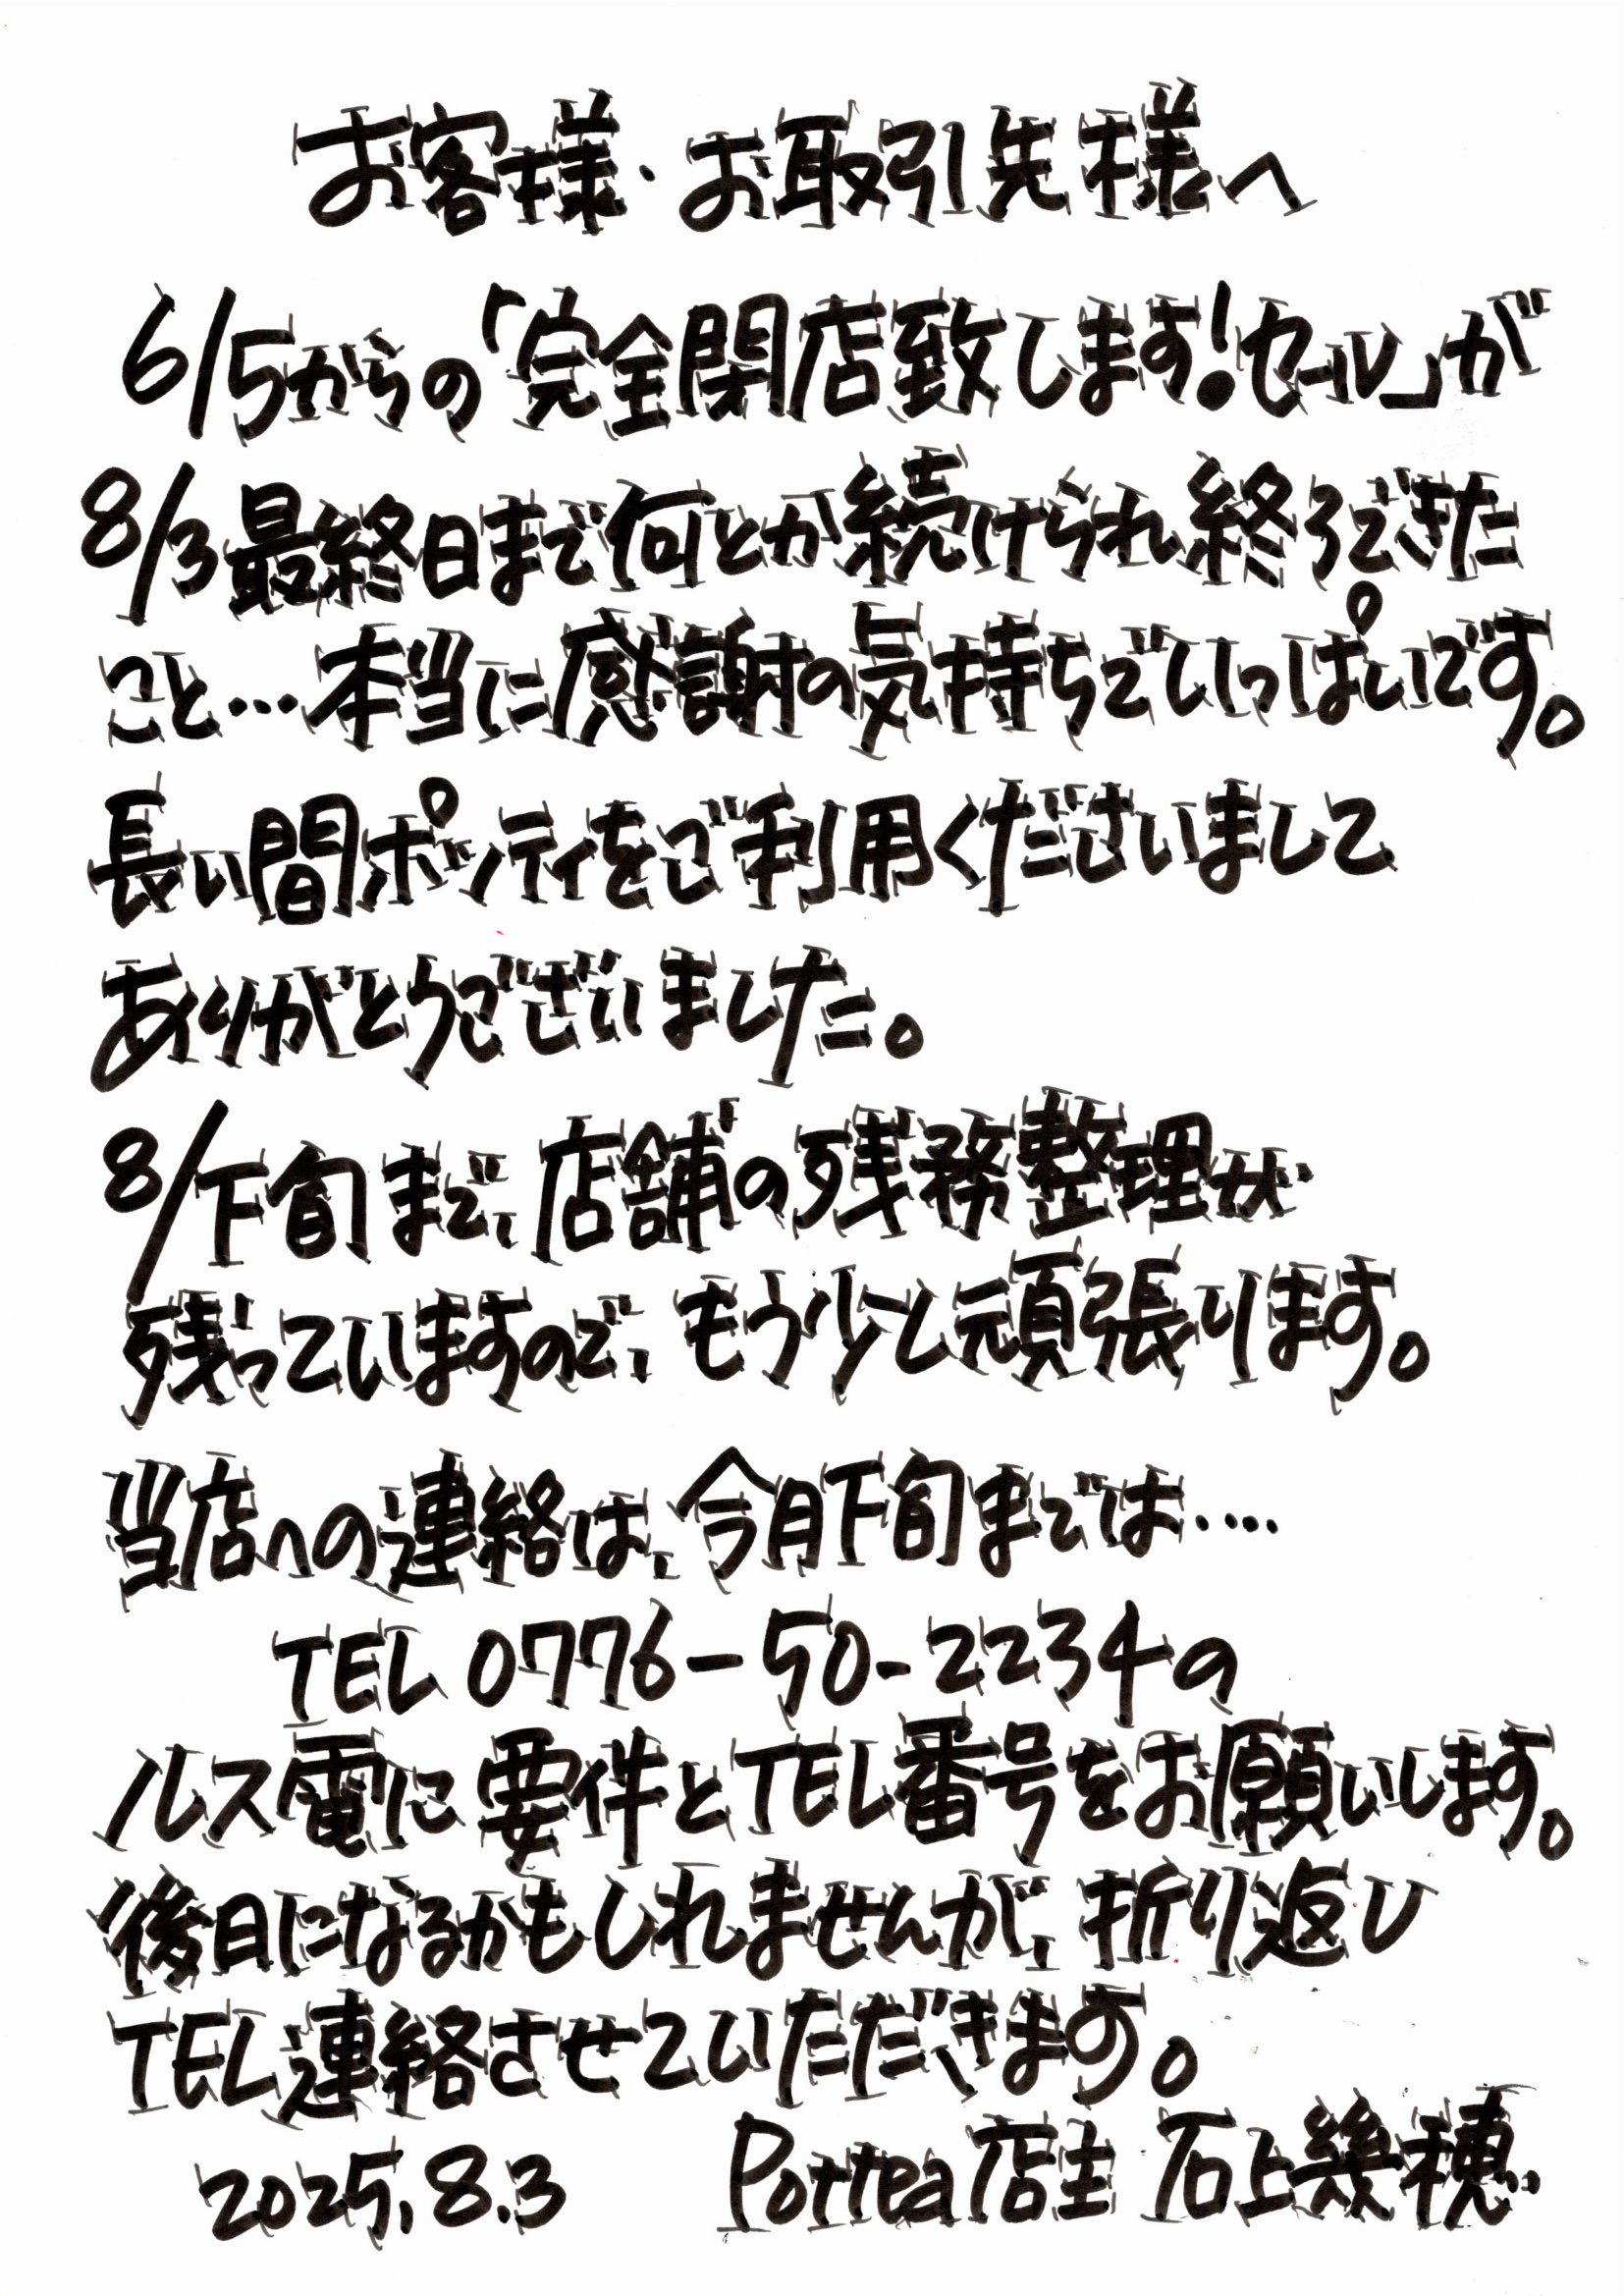 お客様・お取引先様へ
6/5からの「完全閉店致します!セール」が
8/3最終日まで何とか続けられ終了できた
こと…本当に感謝の気持ちでいっぱいです。
長い間ポッティをご利用くださいまして
ありがとうございました。
8/下旬まで、店舗の残務整理が
残っていますので、もう少し頑張ります。
当店への連絡は、今月下旬までは‥‥
TEL 0776-50-2234の
ルス電に要件とTEL番号をお願いします。
後日になるかもしれませんが、折り返し
TEL連絡させていただきます。
2025.8.3 Pottea店主 石上幾穂